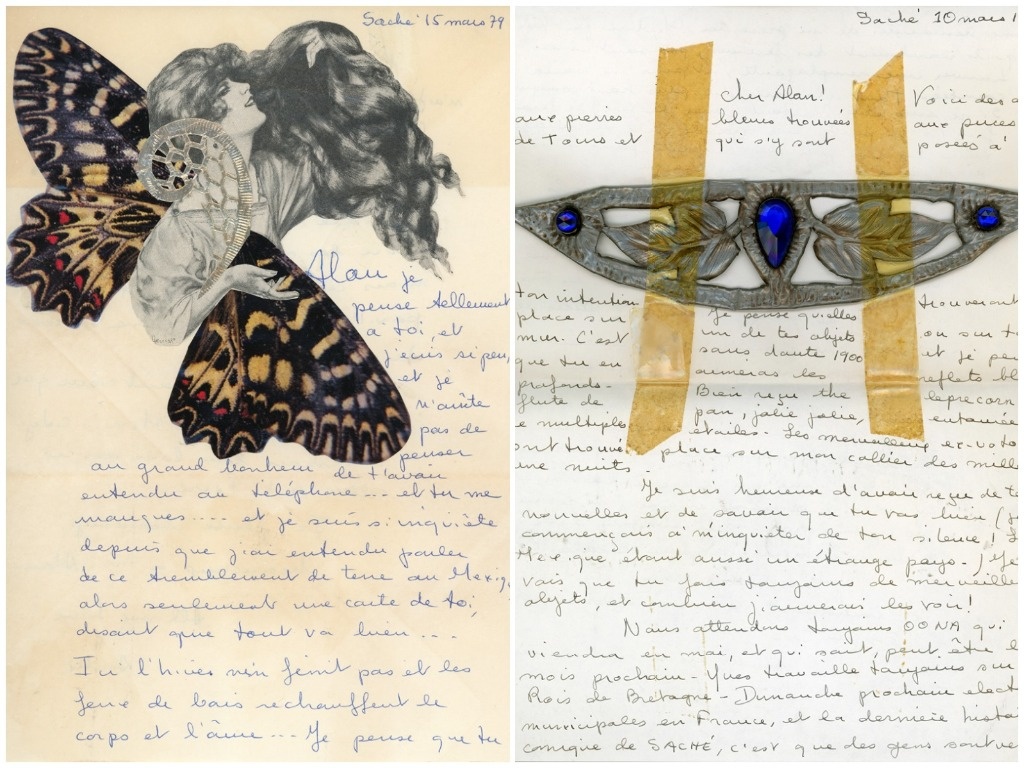 Saché 15 mars 79
Alan je
pense tellement
à toi et
j'écris si peu,
et je
n'arrête
pas de
penser
au grand bonheur de t'avoir
entendu au téléphone... et tu me
manques.... et je suis si inquiète
depuis que j'ai entendu parler
de ce tremblement de terre au Mexiq
alors seulement une carte de toi,
disant que tout va bien....
Ici l'hiver n'en finit pas et les
feux de bois rechauffent le
corps et l'âme... Je pense que tu
Saché 10 mars 1
Cher Alan! Voici des
aux pierres bleues trouvées aux puces
de Tours et qui s'y sont posées à
ton intention Je pense qu'elles trouveront
place sur un de tes objets ou sur t
mur. C'est sans doute 1900 et je pen
que tu en aimeras les reflets bl
profonds. Bien reçu the leprecorn
flute de pan, jolie jolie, entourée
e multiples étoiles. Les merveilleux ex-voto
ont trouvé place sur mon collier des mille
une nuits.
Je suis heureuse d'avoir reçu de te
nouvelles et de savoir que tu vas bien (je
commençais à m'inquiéter de ton silence! L
Mexique étant aussi un étrange pays.) Je
vois que tu fais toujours de merveille
objets, et combien j'aimerais les voir!
Nous attendons toujours OONA qui
viendra en mai, et qui sait, peut être l
mois prochain - Yves travaille toujours sur
Rois de Bretagne - Dimanche prochain elect
municipales en France, et la dernière histoi
comique de SACHÉ, c'est que des gens sont ve